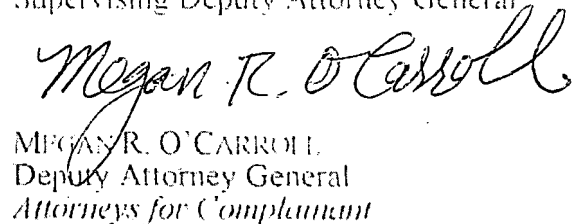 Supervising Deputy Attorney General
Megan R. O'Carroll
MEGAN R. O'CARROLL
Deputy Attorney General
Attorneys for Complainant